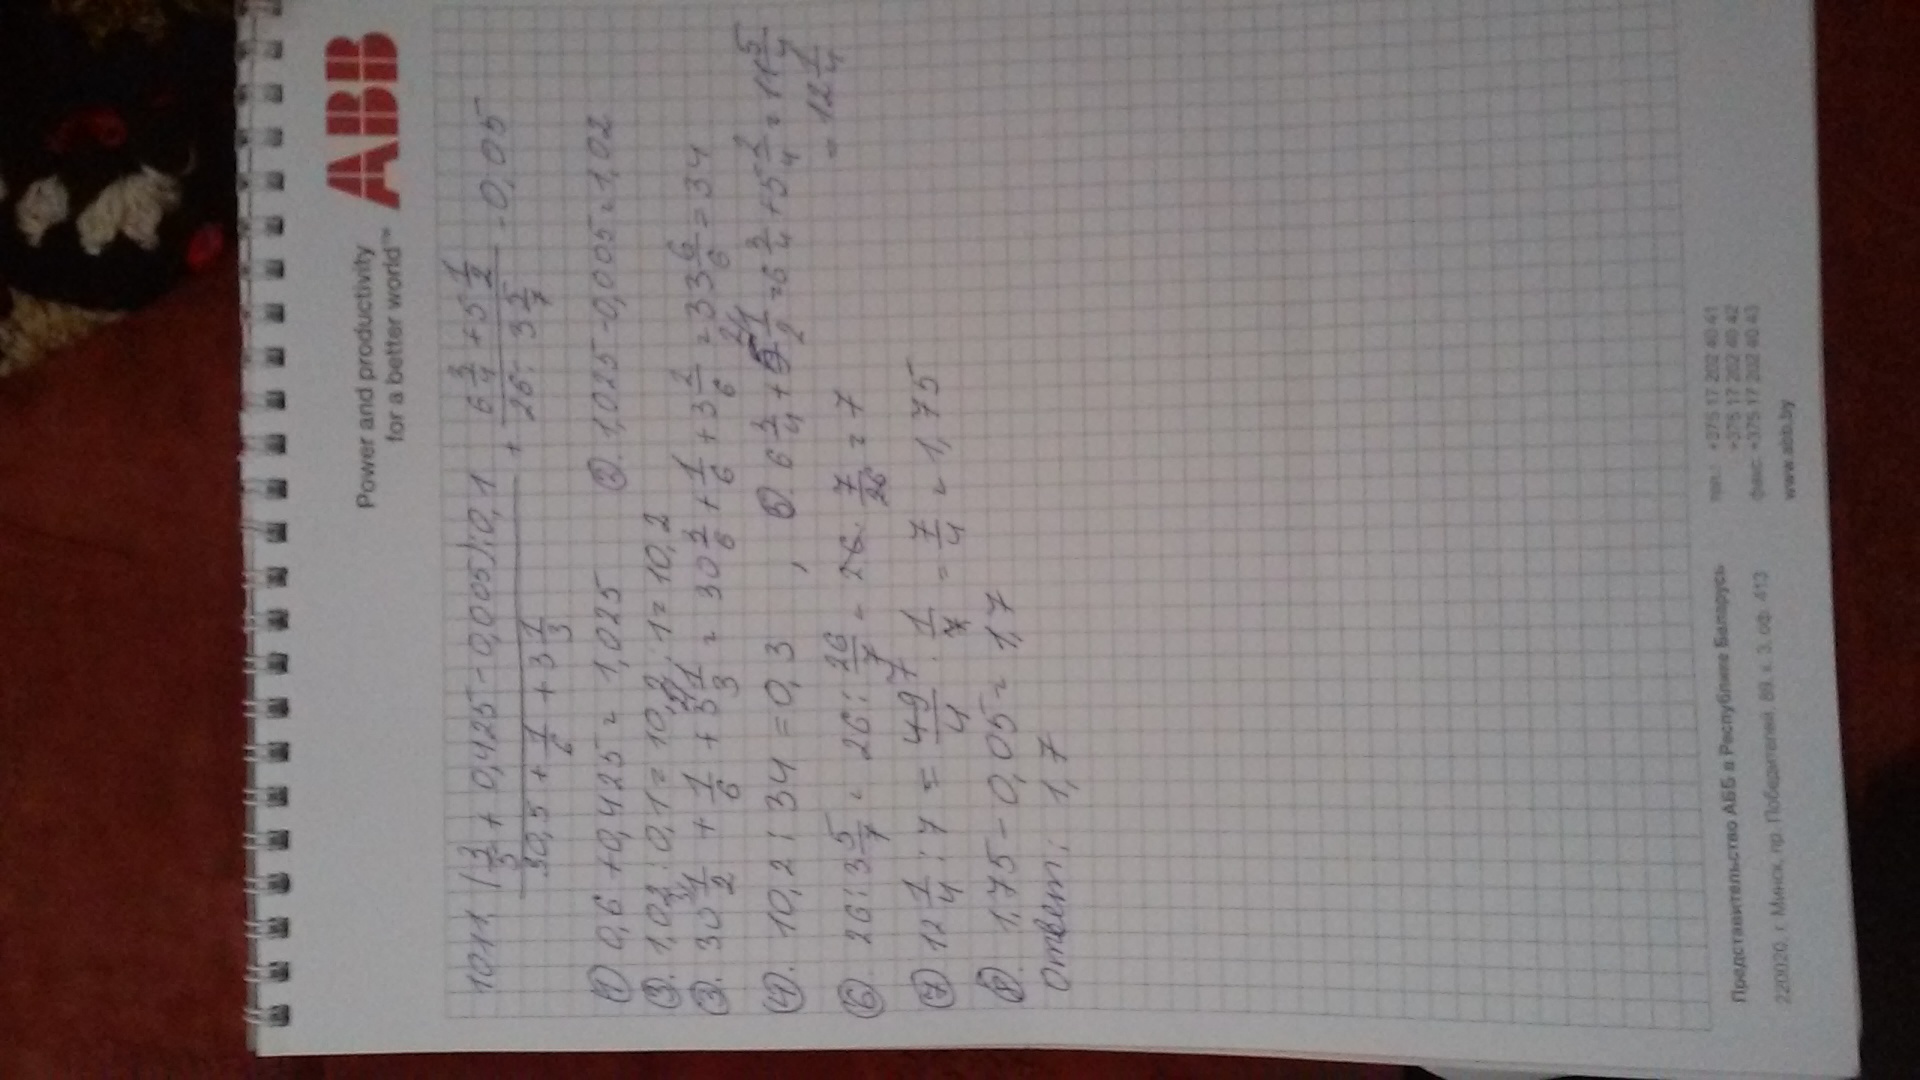 ABB
Power and productivity
for a better world™
1011. (3/5 + 0,425 - 0,005) : 0,1 / 30,5 + 1/6 + 3 1/3 + 6 3/4 + 5 1/2 / 26 : 3 5/7 - 0,05
① 0,6 + 0,425 = 1,025 ②. 1,025 - 0,005 = 1,02
③. 1,02 : 0,1 = 10,2 : 1 = 10,2
③. 30 1/2 + 1/6 + 3 1/3 = 30 3/6 + 1/6 + 3 2/6 = 33 6/6 = 34
④. 10,2 : 34 = 0,3 , ⑤. 6 3/4 + 5 1/2 = 6 3/4 + 5 2/4 = 11 5/4 =
= 12 1/4
⑥. 26 : 3 5/7 = 26 : 26/7 = 26 · 7/26 = 7
⑦ 12 1/4 : 7 = 49/4 · 1/7 = 7/4 = 1,75
⑧. 1,75 - 0,05 = 1,7
Ответ: 1,7
Представительство АББ в Республике Беларусь
220020, г. Минск, пр. Победителей, 89, к. 3, оф. 413
тел.: +375 17 202 40 41
+375 17 202 40 42
факс: +375 17 202 40 43
www.abb.by